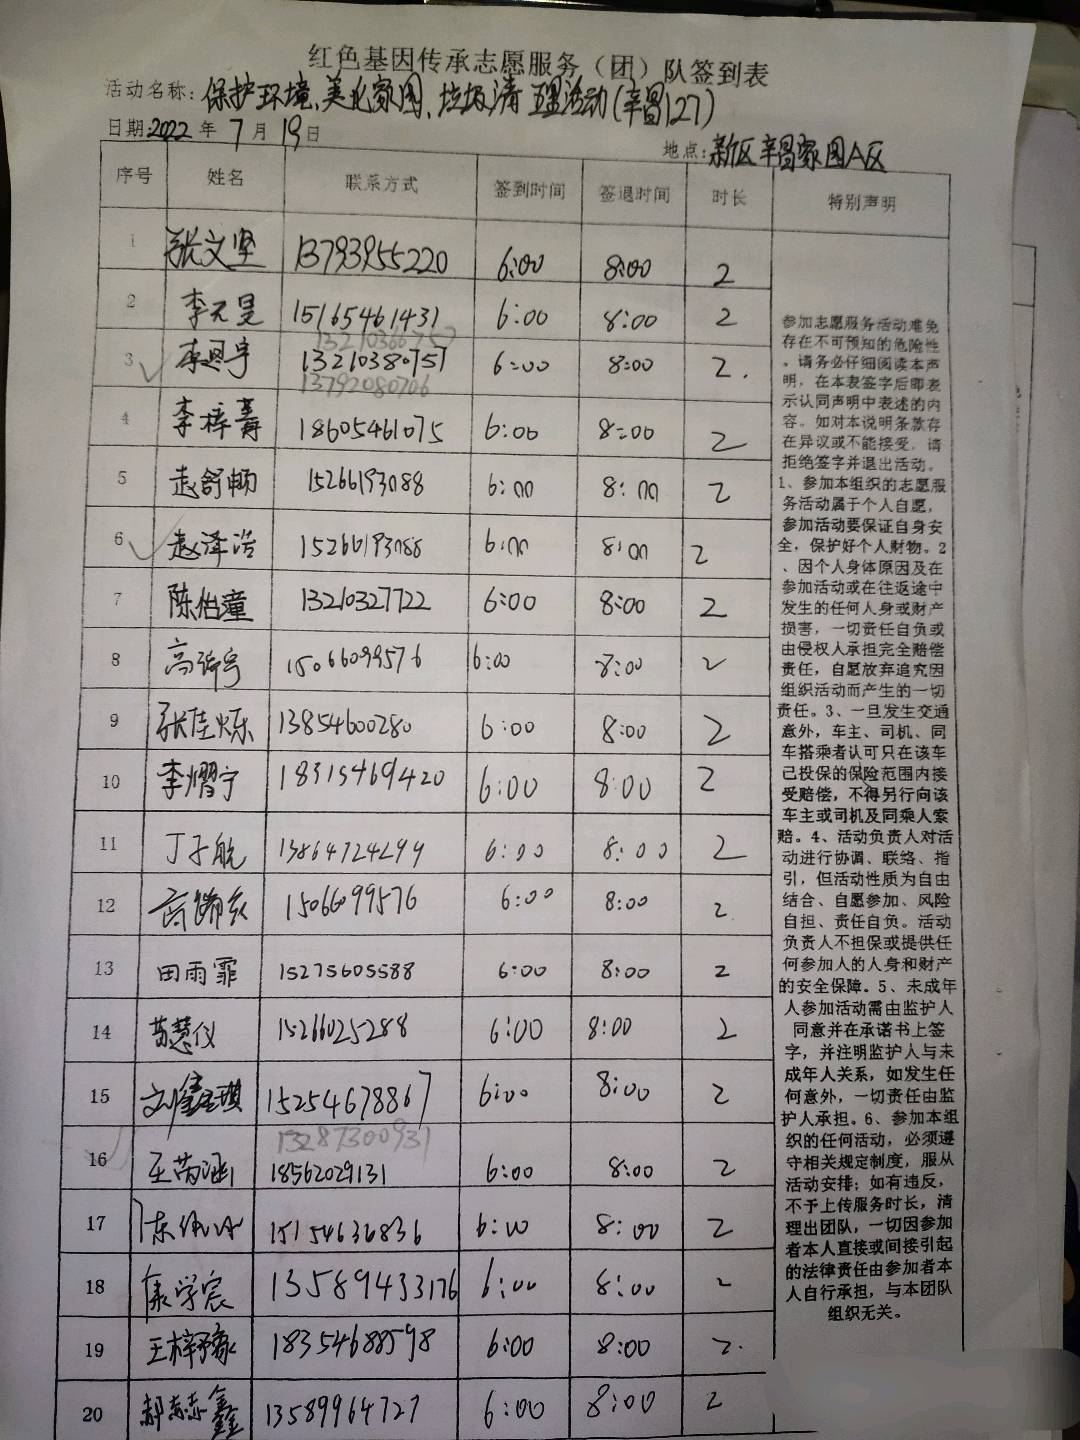 红色基因传承志愿服务（团）队签到表
活动名称：保护环境、美化家园、垃圾清理活动(辛昌127)
日期:2022年7月19日
地点:新区辛昌家园A区
序号 姓名 联系方式 签到时间 签退时间 时长 特别声明
1 张文坚 13793955220 6:00 8:00 2
2 李天昊 15165461431 6:00 8:00 2
3 李恩宇 13210380757 6:00 8:00 2
13792080706
4 李梓菁 18605461075 6:00 8:00 2
5 赵舒畅 15266193088 6:00 8:00 2
6 赵泽浩 15266193088 6:00 8:00 2
7 陈怡潼 13210327722 6:00 8:00 2
8 15066099576 6:00 8:00 2
9 张佳烁 13854600280 6:00 8:00 2
10 李熠宁 18315469420 6:00 8:00 2
11 丁子航 13864724299 6:00 8:00 2
12 15066099576 6:00 8:00 2
13 田雨霏 15275605588 6:00 8:00 2
14 苗慧仪 15266025288 6:00 8:00 2
15 刘鑫琪 15254678867 6:00 8:00 2
13287300931
16 王芮涵 18562029131 6:00 8:00 2
17 15154636836 6:00 8:00 2
18 康学宸 13589433176 6:00 8:00 2
19 王梓豫 18354688598 6:00 8:00 2
20 郝赫鑫 13589964727 6:00 8:00 2
参加志愿服务活动难免
存在不可预知的危险性
，请务必仔细阅读本声
明，在本表签字后即表
示认同声明中表述的内
容。如对本说明条款存
在异议或不能接受，请
拒绝签字并退出活动。
1、参加本组织的志愿服
务活动属于个人自愿，
参加活动要保证自身安
全，保护好个人财物。2
、因个人身体原因及在
参加活动或在往返途中
发生的任何人身或财产
损害，一切责任自负或
由侵权人承担完全赔偿
责任，自愿放弃追究因
组织活动而产生的一切
责任。3、一旦发生交通
意外，车主、司机、同
车搭乘者认可只在该车
已投保的保险范围内接
受赔偿，不得另行向该
车主或司机及同乘人索
赔。4、活动负责人对活
动进行协调、联络、指
引，但活动性质为自由
结合、自愿参加、风险
自担、责任自负。活动
负责人不担保或提供任
何参加人的人身和财产
的安全保障。5、未成年
人参加活动需由监护人
同意并在承诺书上签
字，并注明监护人与未
成年人关系，如发生任
何意外，一切责任由监
护人承担。6、参加本组
织的任何活动，必须遵
守相关规定制度，服从
活动安排；如有违反，
不予上传服务时长，清
理出团队，一切因参加
者本人直接或间接引起
的法律责任由参加者本
人自行承担，与本团队
组织无关。